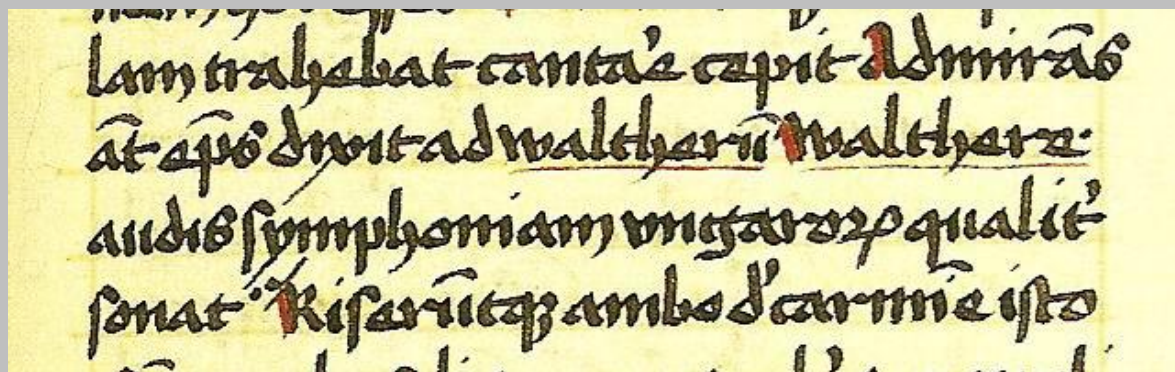 lam trahebat cantar̕e cepit Admirās
āt ep̄s dixit ad waltherū Walthere·
audis symphoniam vngaroꝝ qualit̕
sonat Riserūtqꝫ ambo d̕ carmīe isto